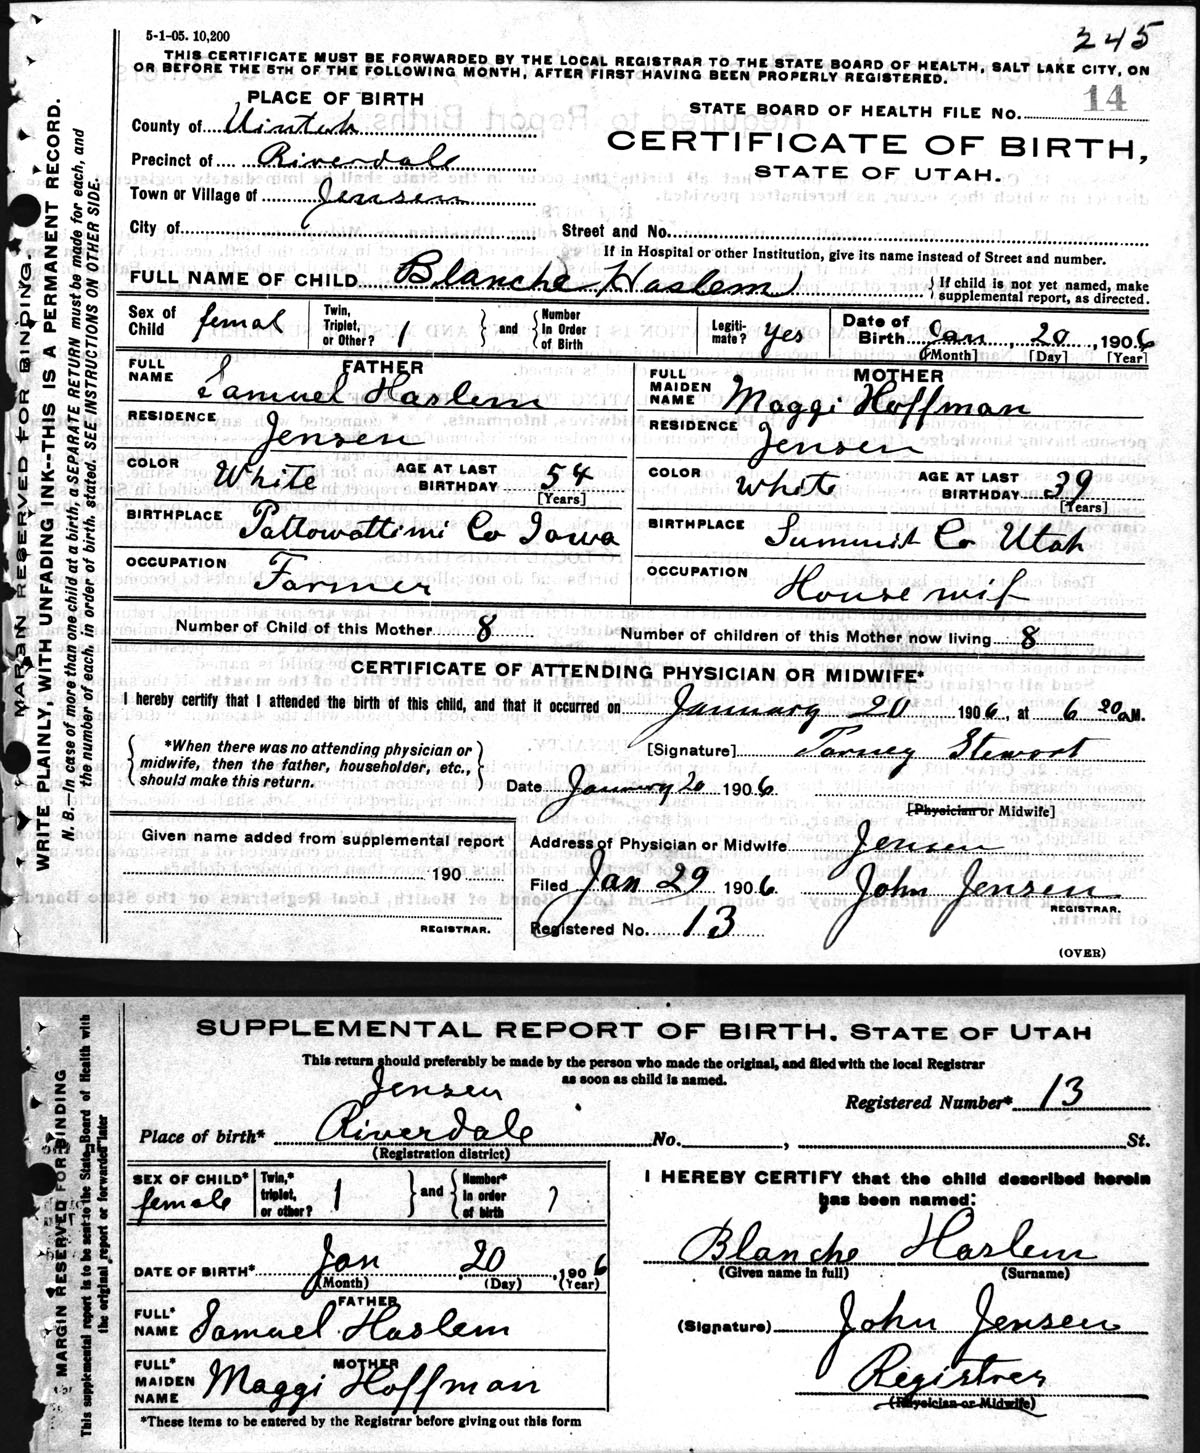 245
5-1-05. 10,200
THIS CERTIFICATE MUST BE FORWARDED BY THE LOCAL REGISTRAR TO THE STATE BOARD OF HEALTH, SALT LAKE CITY, ON
OR BEFORE THE 5TH OF THE FOLLOWING MONTH, AFTER FIRST HAVING BEEN PROPERLY REGISTERED.
PLACE OF BIRTH
STATE BOARD OF HEALTH FILE No. 14
County of Uintah
CERTIFICATE OF BIRTH,
Precinct of Riverdale
STATE OF UTAH.
Town or Village of Jensen
City of Street and No.
If in Hospital or other Institution, give its name instead of Street and number.
FULL NAME OF CHILD Blanche Haslem
If child is not yet named, make
supplemental report, as directed.
Sex of Child femal
Twin, Triplet, or Other? 1 and Number in Order of Birth
Legitimate? yes
Date of Birth Jan, 20, 1906
[Month] [Day] [Year]
FATHER
FULL NAME Samuel Haslem
MOTHER
FULL MAIDEN NAME Maggi Hoffman
RESIDENCE Jensen
RESIDENCE Jensen
COLOR White AGE AT LAST BIRTHDAY 54 [Years]
COLOR white AGE AT LAST BIRTHDAY 39 [Years]
BIRTHPLACE Pattowattimi Co Iowa
BIRTHPLACE Summit Co Utah
OCCUPATION Farmer
OCCUPATION House wif
Number of Child of this Mother 8 Number of children of this Mother now living 8
CERTIFICATE OF ATTENDING PHYSICIAN OR MIDWIFE*
I hereby certify that I attended the birth of this child, and that it occurred on January 20 1906, at 6 20 a M.
*When there was no attending physician or
midwife, then the father, householder, etc.,
should make this return.
[Signature] Tarney Stewart
Date January 20 1906.
[Physician or Midwife]
Given name added from supplemental report
190
REGISTRAR.
Address of Physician or Midwife Jensen
Filed Jan 29 1906 John Jensen
REGISTRAR.
Registered No. 13
(OVER)
MARGIN RESERVED FOR BINDING.
WRITE PLAINLY, WITH UNFADING INK--THIS IS A PERMANENT RECORD.
N. B.—In case of more than one child at a birth, a SEPARATE RETURN must be made for each, and
the number of each, in order of birth, stated. SEE INSTRUCTIONS ON OTHER SIDE.
SUPPLEMENTAL REPORT OF BIRTH. STATE OF UTAH
This return should preferably be made by the person who made the original, and filed with the local Registrar
as soon as child is named.
Jensen
Registered Number* 13
Place of birth* Riverdale No. , St.
(Registration district)
SEX OF CHILD* female
Twin,* triplet, or other? 1 and Number* in order of birth 1
I HEREBY CERTIFY that the child described herein
has been named:
Blanche Haslem
(Given name in full) (Surname)
DATE OF BIRTH* Jan 20, 1906
(Month) (Day) (Year)
FATHER
FULL* NAME Samuel Haslem
(Signature) John Jensen
MOTHER
FULL* MAIDEN NAME Maggi Hoffman
Registrer
(Physician or Midwife)
*These items to be entered by the Registrar before giving out this form
MARGIN RESERVED FOR BINDING
This supplemental report is to be sent to the State Board of Health with
the original report or forwarded later